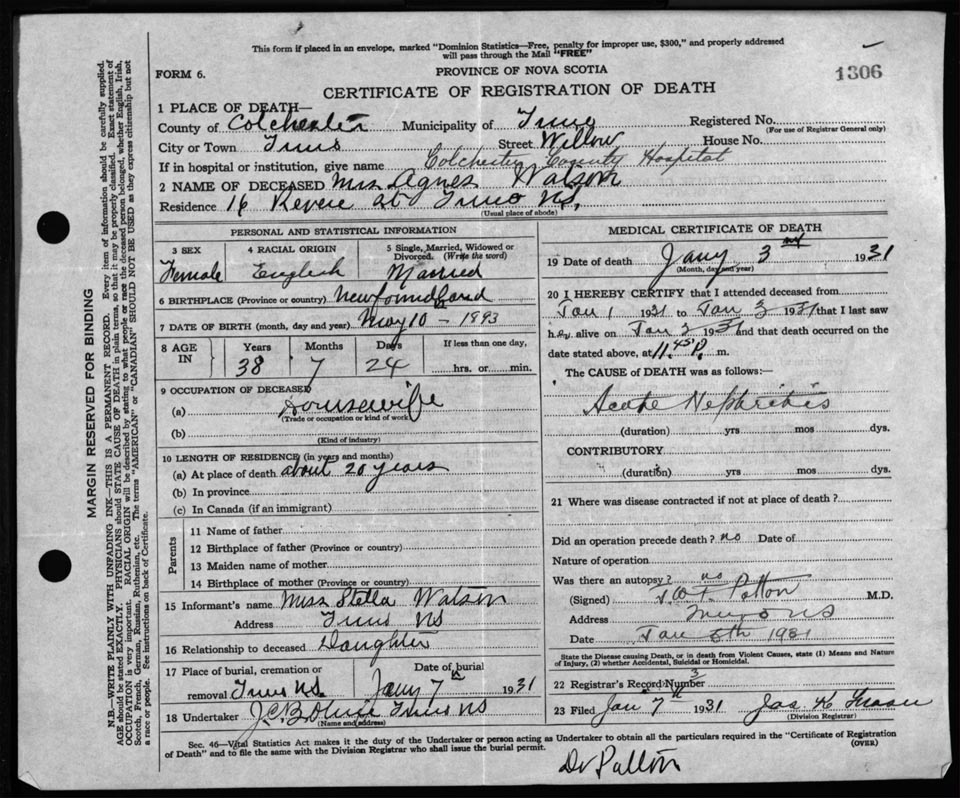 This form if placed in an envelope, marked "Dominion Statistics—Free, penalty for improper use, $300," and properly addressed
will pass through the Mail "FREE"
FORM 6.
PROVINCE OF NOVA SCOTIA
1306
CERTIFICATE OF REGISTRATION OF DEATH
1 PLACE OF DEATH—
County of Colchester Municipality of Truro Registered No.
(For use of Registrar General only)
City or Town Truro Street Willow House No.
If in hospital or institution, give name Colchester County Hospital
2 NAME OF DECEASED Mrs Agnes Watson
Residence 16 Revere at Truro NS.
(Usual place of abode)
PERSONAL AND STATISTICAL INFORMATION
3 SEX 4 RACIAL ORIGIN 5 Single, Married, Widowed or
Divorced. (Write the word)
Female English Married
6 BIRTHPLACE (Province or country) Newfoundland
7 DATE OF BIRTH (month, day and year) May 10 – 1893
8 AGE IN Years Months Days If less than one day,
38 7 24 hrs. or min.
9 OCCUPATION OF DECEASED
(a) Housewife
(Trade or occupation or kind of work)
(b)
(Kind of industry)
10 LENGTH OF RESIDENCE (in years and months)
(a) At place of death about 20 years
(b) In province
(c) In Canada (if an immigrant)
Parents
11 Name of father
12 Birthplace of father (Province or country)
13 Maiden name of mother
14 Birthplace of mother (Province or country)
15 Informant's name Miss Stella Watson
Address Truro NS
16 Relationship to deceased Daughter
17 Place of burial, cremation or Date of burial
removal Truro NS. Jany 7th 1931
18 Undertaker Truro NS
(Name and address)
MEDICAL CERTIFICATE OF DEATH
19 Date of death Jany 3rd 1931
(Month, day and year)
20 I HEREBY CERTIFY that I attended deceased from
Jan 1 1931 to Jan 3 1931 that I last saw
her alive on Jan 3 1931 and that death occurred on the
date stated above, at 11.45 P. m.
The CAUSE of DEATH was as follows:—
Acute Nephritis
(duration) yrs mos dys.
CONTRIBUTORY
(duration) yrs mos dys.
21 Where was disease contracted if not at place of death?
Did an operation precede death? no Date of
Nature of operation
Was there an autopsy? no
(Signed) Patton M.D.
Address Truro NS
Date Jan 6th 1931
State the Disease causing Death, or in death from Violent Causes, state (1) Means and Nature
of Injury, (2) whether Accidental, Suicidal or Homicidal.
22 Registrar's Record Number 3
23 Filed Jan 7th 1931 Jas K Fraser
(Division Registrar)
Sec. 46—Vital Statistics Act makes it the duty of the Undertaker or person acting as Undertaker to obtain all the particulars required in the "Certificate of Registration
of Death" and to file the same with the Division Registrar who shall issue the burial permit.
(OVER)
Dr Patton
MARGIN RESERVED FOR BINDING
N.B.—WRITE PLAINLY WITH UNFADING INK—THIS IS A PERMANENT RECORD. Every item of information should be carefully supplied.
AGE should be stated EXACTLY. PHYSICIANS should STATE CAUSE OF DEATH in plain terms, so that it may be properly classified. Exact statement of
OCCUPATION is very important. RACIAL ORIGIN will be described by stating to what people or race the deceased person belonged, whether English, Irish,
Scotch, French, German, Russian, Ruthenian, etc. The terms "AMERICAN" or "CANADIAN" SHOULD NOT BE USED as they express citizenship but not
a race or people. See instructions on back of Certificate.